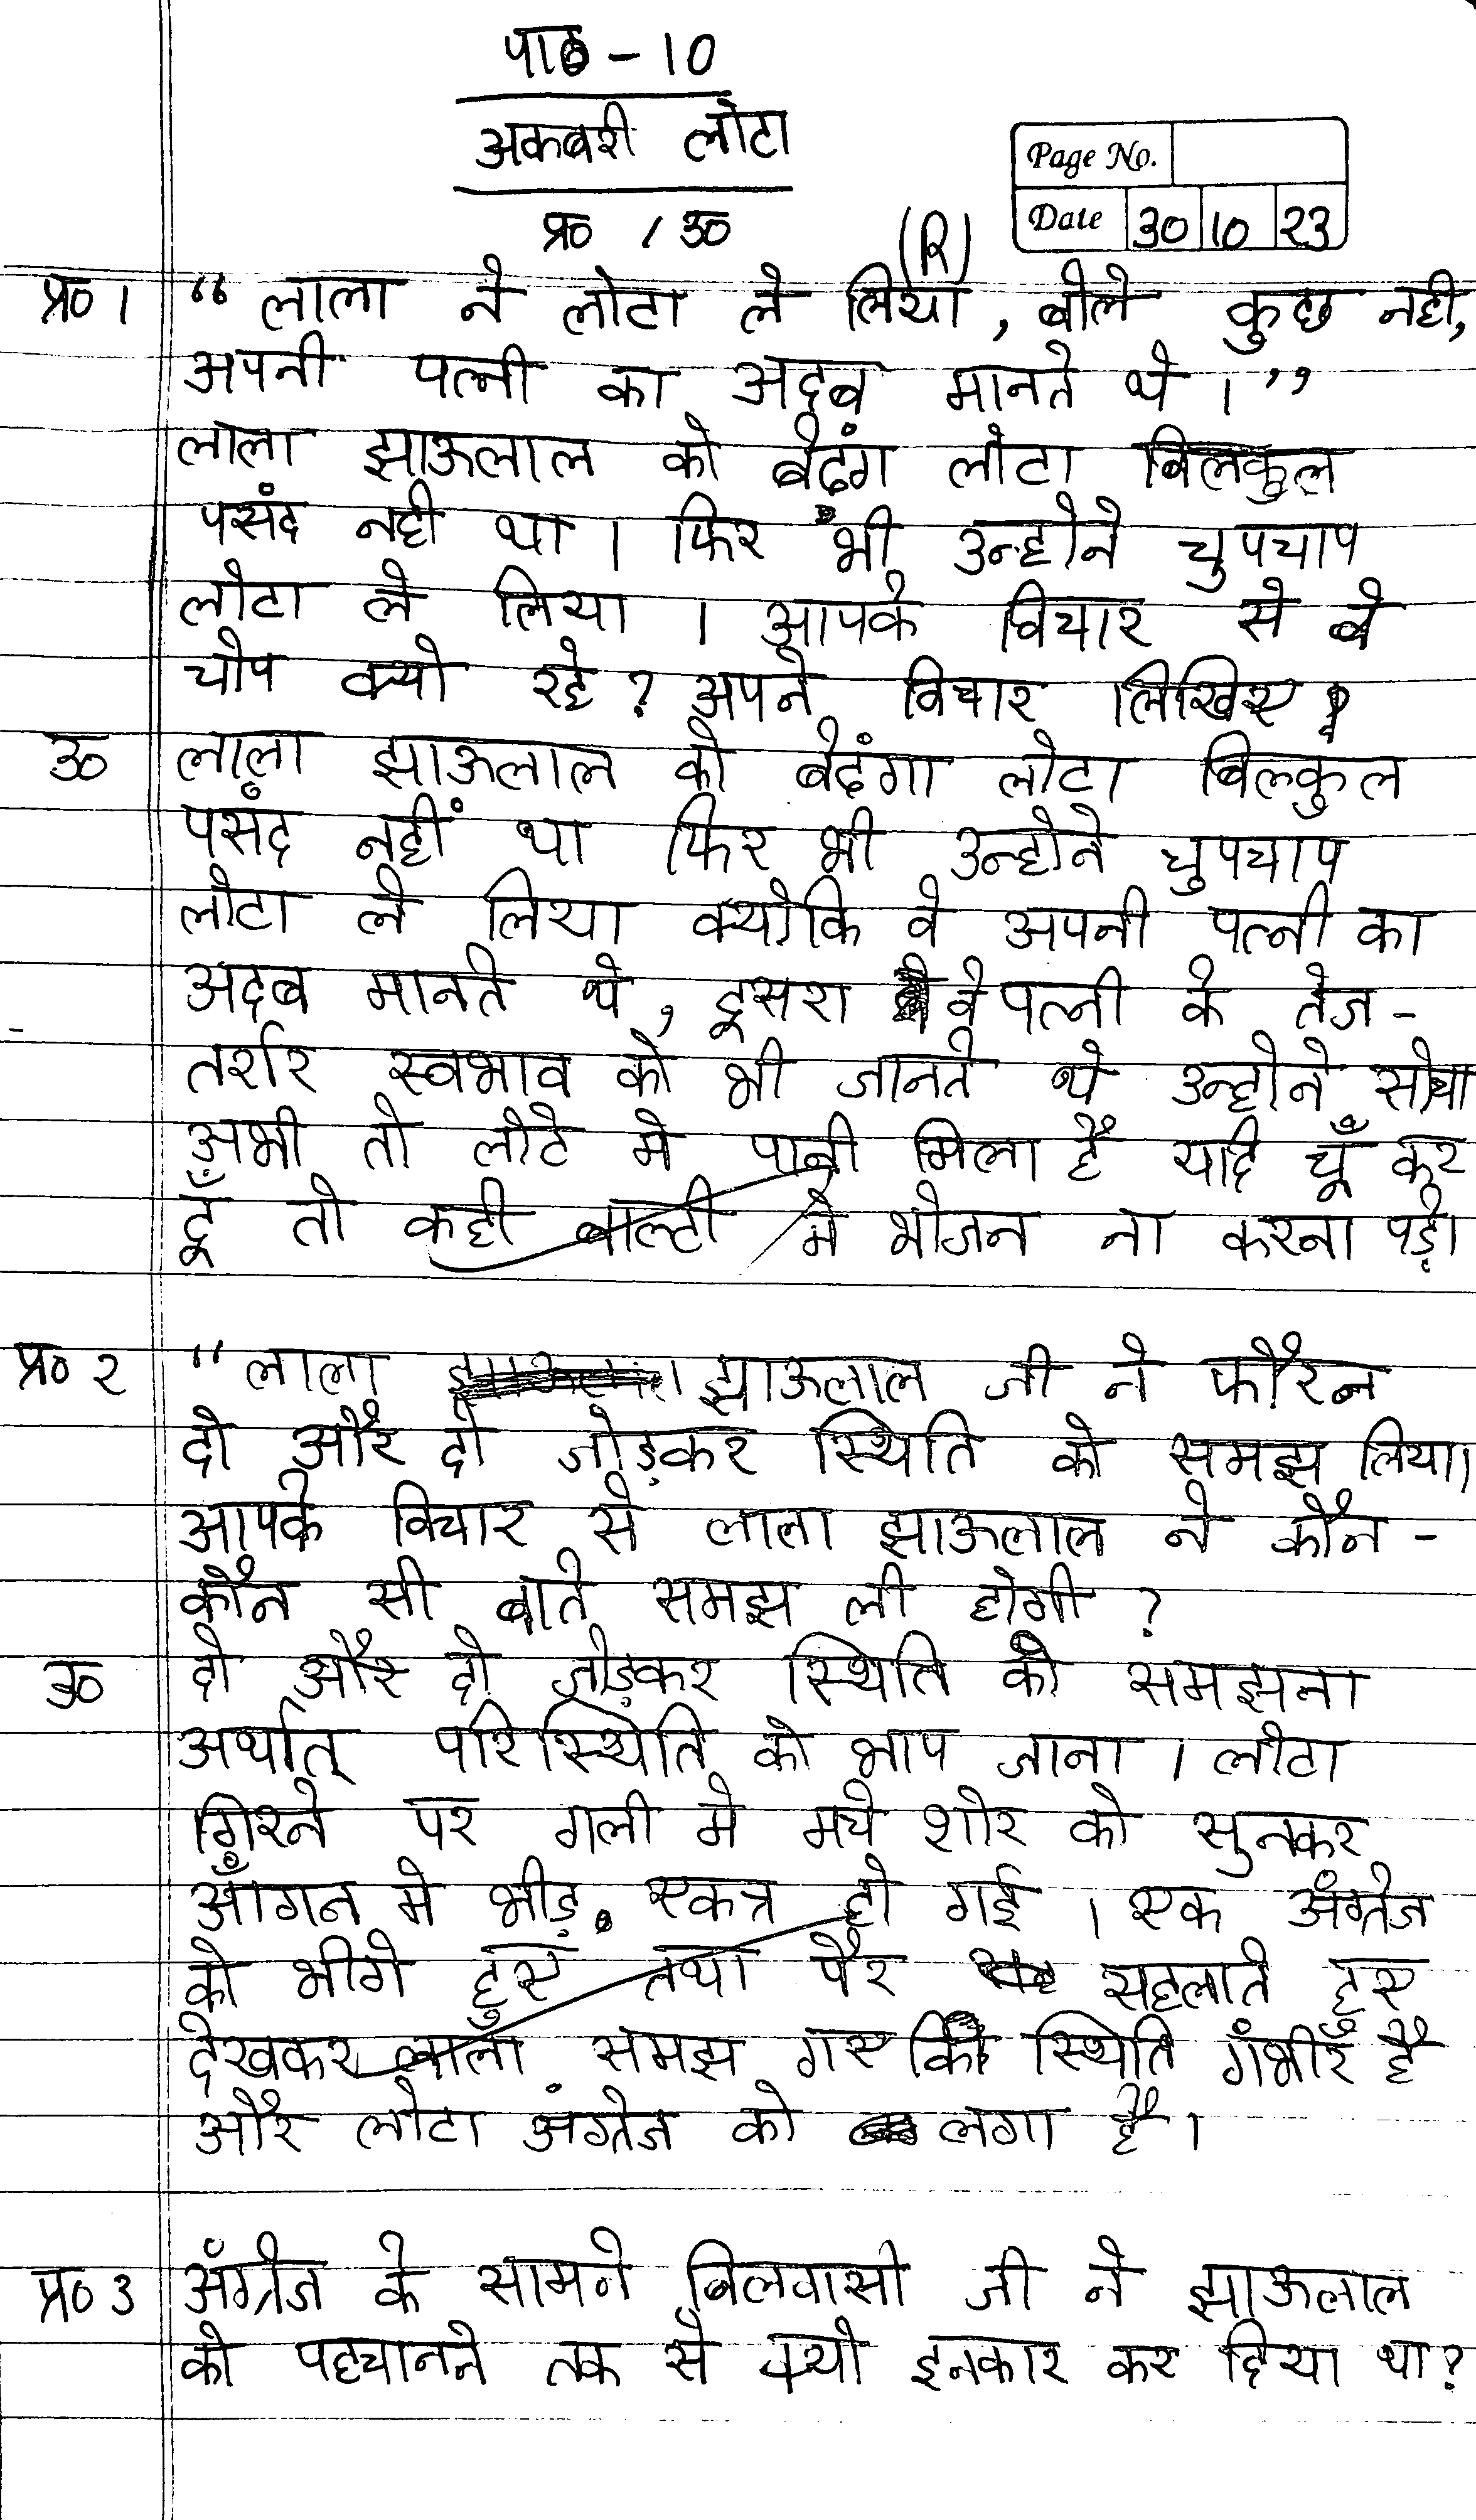 पाठ - 10
अकबरी लोटा
Page No.
Date 30 10 23
प्र० / उ०
(R)
प्र० 1 “ लाला ने लोटा ले लिया, बोले कुछ नही,
अपनी पत्नी का अदब मानते थे । ”
लाला झाऊलाल को बेढंग लोटा बिलकुल
पसंद नही था । फिर भी उन्होने चुपचाप
लोटा ले लिया । आपके विचार से वे
चोप क्यो रहे ? अपने विचार लिखिए ।
उ० लाला झाऊलाल को बेढंगा लोटा बिल्कुल
पसंद नहीं था फिर भी उन्होने चुपचाप
लोटा ले लिया क्योकि वे अपनी पत्नी का
अदब मानते थे, दूसरा वे पत्नी के तेज -
तर्रार स्वभाव को भी जानते थे उन्होने सोचा
अभी तो लोटे मे पानी मिला है यदि चूँ कर
दूँ तो कही बाल्टी मे भोजन ना करना पड़े।
प्र० 2 “ लाला झाऊलाल जी ने फौरन
दो और दो जोड़कर स्थिति को समझ लिया।
आपके विचार से लाला झाऊलाल ने कौन -
कौन सी बाते समझ ली होगी ?
उ० दो और दो जोड़कर स्थिति को समझना
अर्थात् परिस्थिति को भाप जाना । लोटा
गिरने पर गली मे मचे शोर को सुनकर
आँगन मे भीड़ एकत्र हो गई । एक अंग्रेज
को भीगे हुए तथा पैर सहलाते हुए
देखकर लाला समझ गए कि स्थिति गंभीर है
और लोटा अंग्रेज को लगा है ।
प्र० 3 अंग्रेज के सामने बिलवासी जी ने झाऊलाल
को पहचानने तक से क्यो इनकार कर दिया था ?